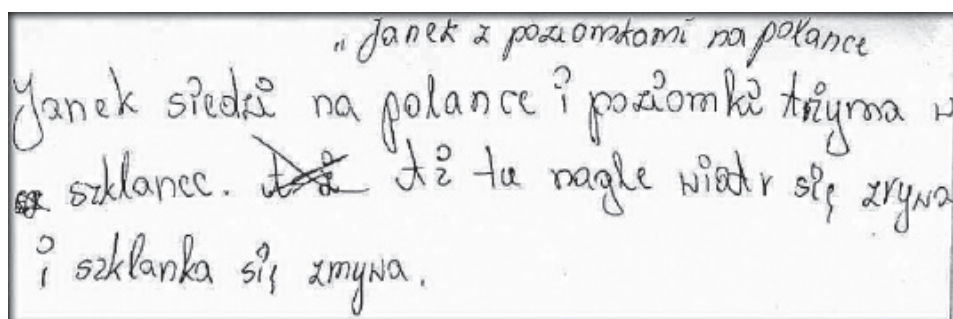 „Janek z poziomkami na polance
Janek siedzi na polance i poziomki trzyma w
szklance. Aż tu nagle wiatr się zrywa
i szklanka się zmywa.